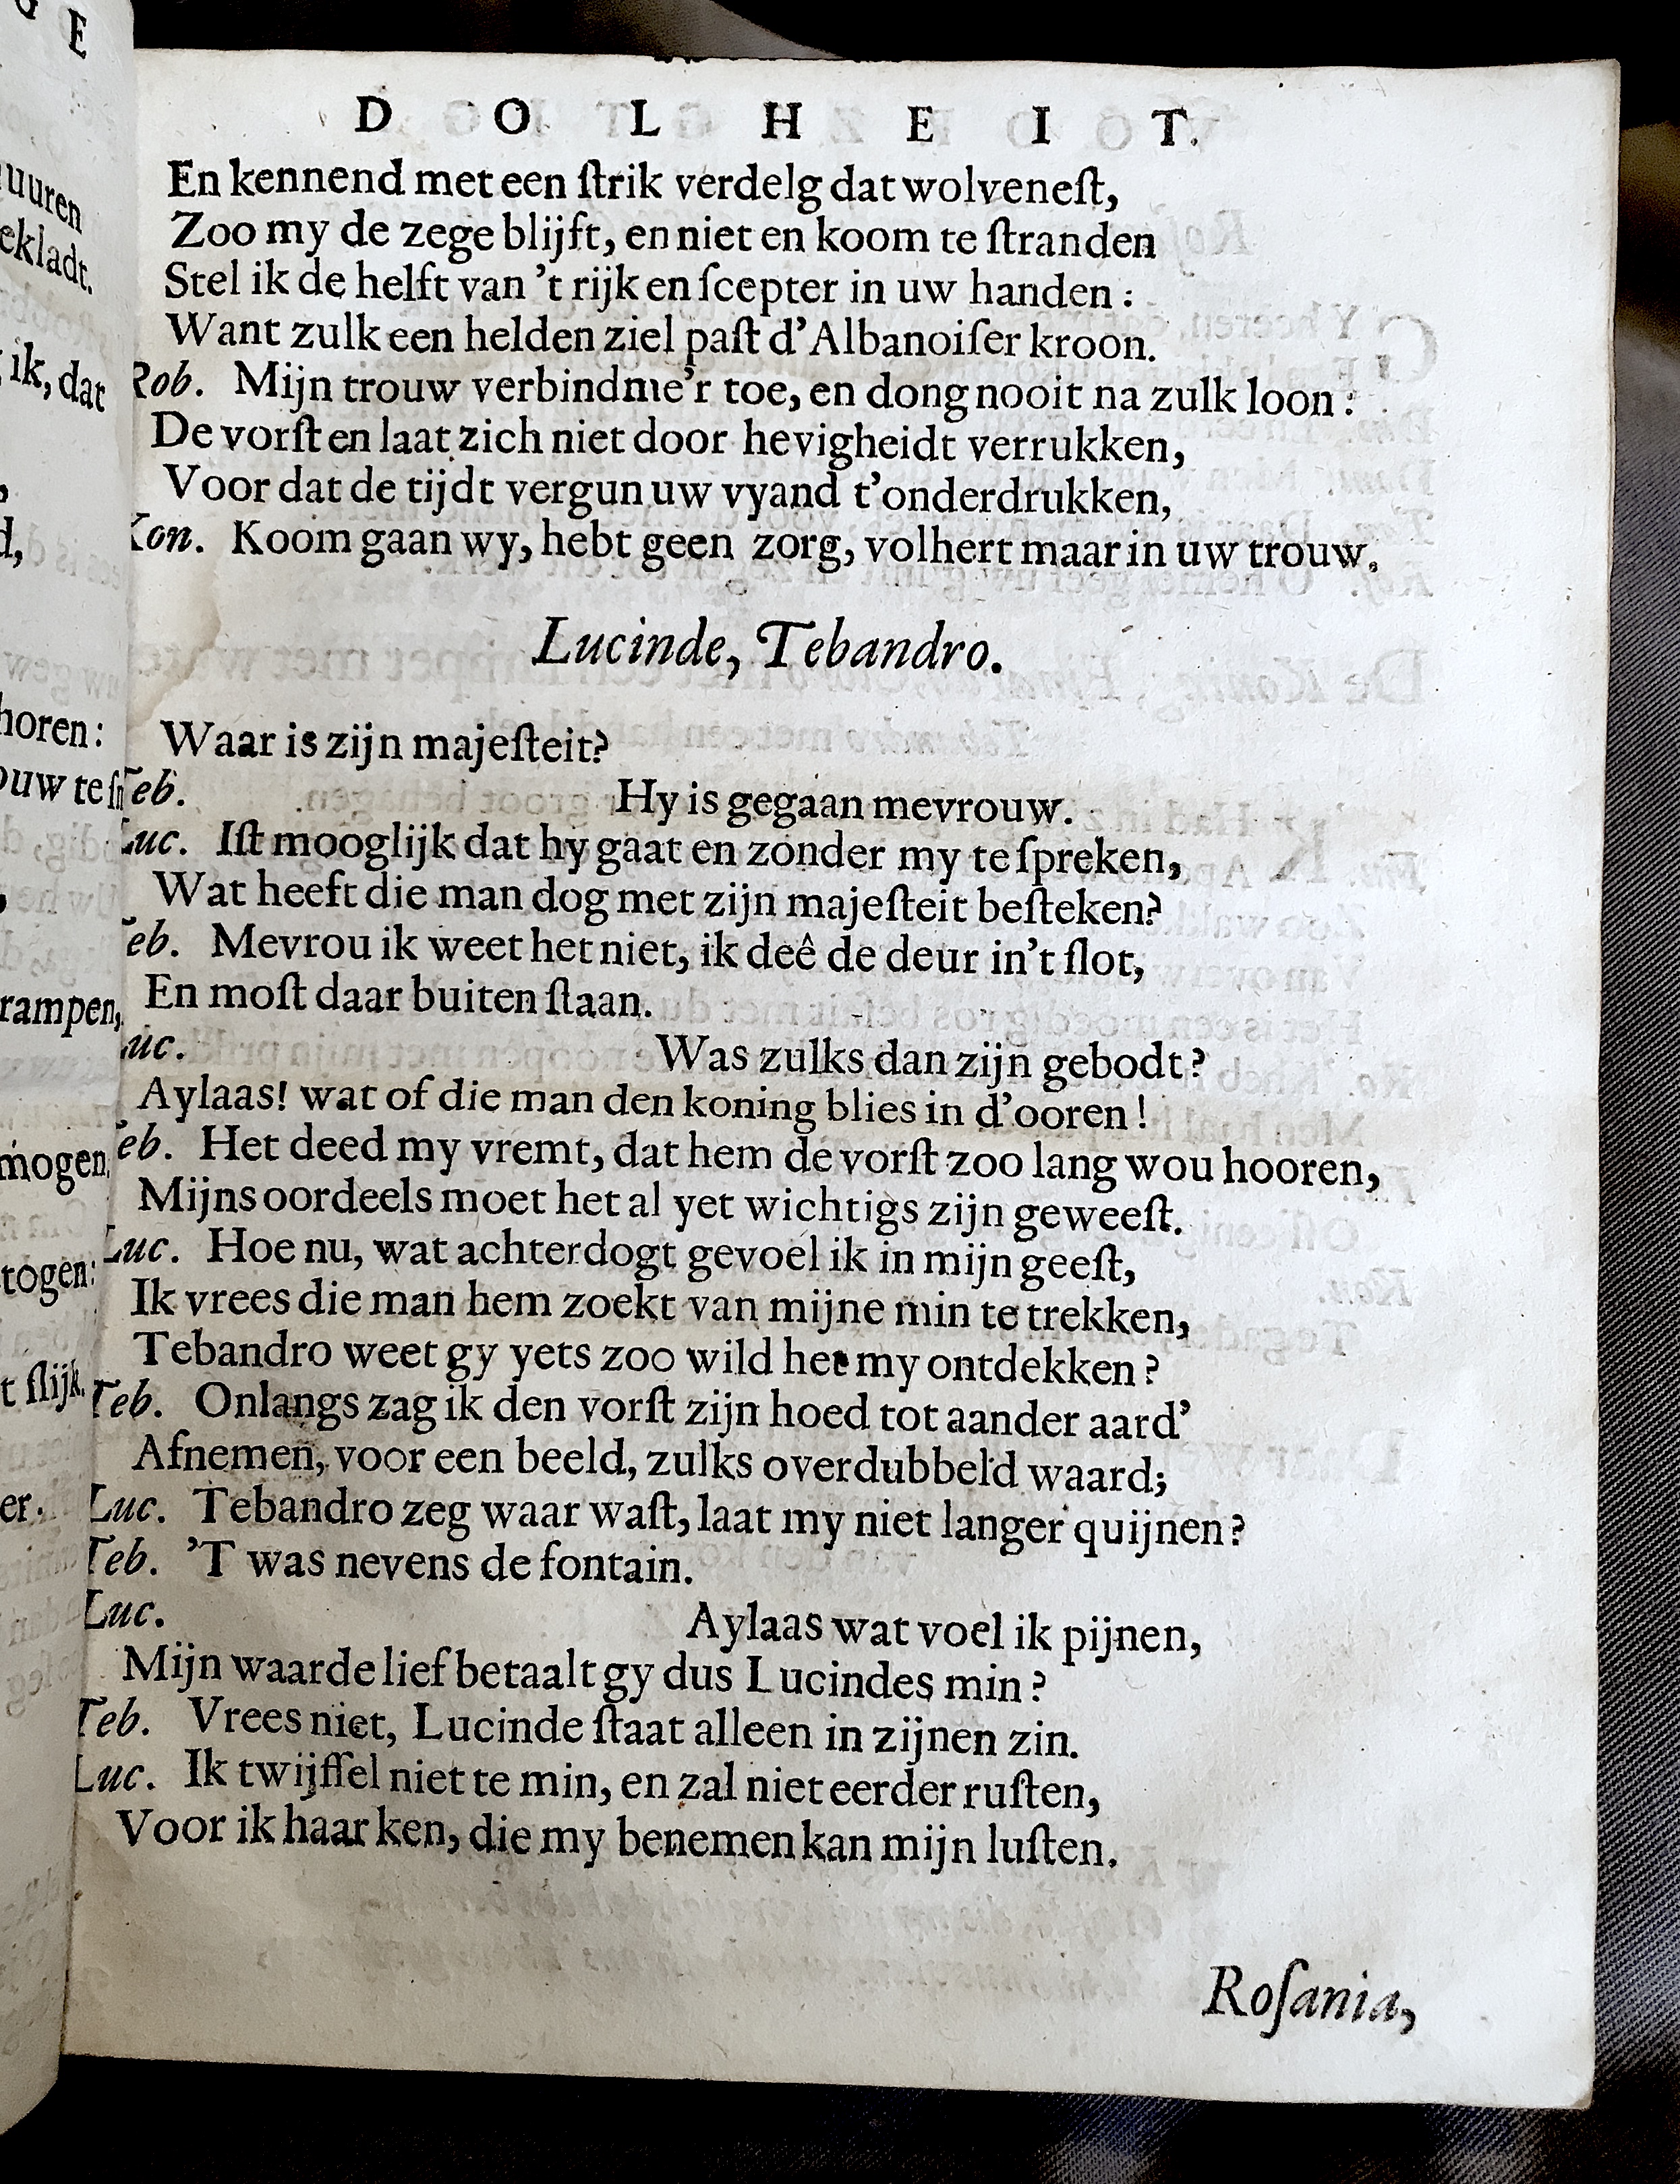 D O L H E I T.
En kennend met een ſtrik verdelg dat wolveneſt,
Zoo my de zege blijft, en niet en koom te ſtranden
Stel ik de helft van 't rijk en ſcepter in uw handen:
Want zulk een helden ziel paſt d'Albanoiſer kroon.
Rob. Mijn trouw verbind me'r toe, en dong nooit na zulk loon:
De vorſt en laat zich niet door hevigheidt verrukken,
Voor dat de tijdt vergun uw vyand t'onderdrukken,
Kon. Koom gaan wy, hebt geen zorg, volhert maar in uw trouw.
Lucinde, Tebandro.
Waar is zijn majeſteit?
Teb. Hy is gegaan mevrouw.
Luc. Iſt mooglijk dat hy gaat en zonder my te ſpreken,
Wat heeft die man dog met zijn majeſteit beſteken?
Teb. Mevrou ik weet het niet, ik deê de deur in't ſlot,
En moſt daar buiten ſtaan.
Luc. Was zulks dan zijn gebodt?
Aylaas! wat of die man den koning blies in d'ooren!
Teb. Het deed my vremt, dat hem de vorſt zoo lang wou hooren,
Mijns oordeels moet het al yet wichtigs zijn geweeſt.
Luc. Hoe nu, wat achterdogt gevoel ik in mijn geeſt,
Ik vrees die man hem zoekt van mijne min te trekken,
Tebandro weet gy yets zoo wild het my ontdekken?
Teb. Onlangs zag ik den vorſt zijn hoed tot aander aard'
Afnemen, voor een beeld, zulks overdubbeld waard;
Luc. Tebandro zeg waar waſt, laat my niet langer quijnen?
Teb. 'T was nevens de fontain.
Luc. Aylaas wat voel ik pijnen,
Mijn waarde lief betaalt gy dus Lucindes min?
Teb. Vrees niet, Lucinde ſtaat alleen in zijnen zin.
Luc. Ik twijffel niet te min, en zal niet eerder ruſten,
Voor ik haar ken, die my benemen kan mijn luſten.
Roſania,